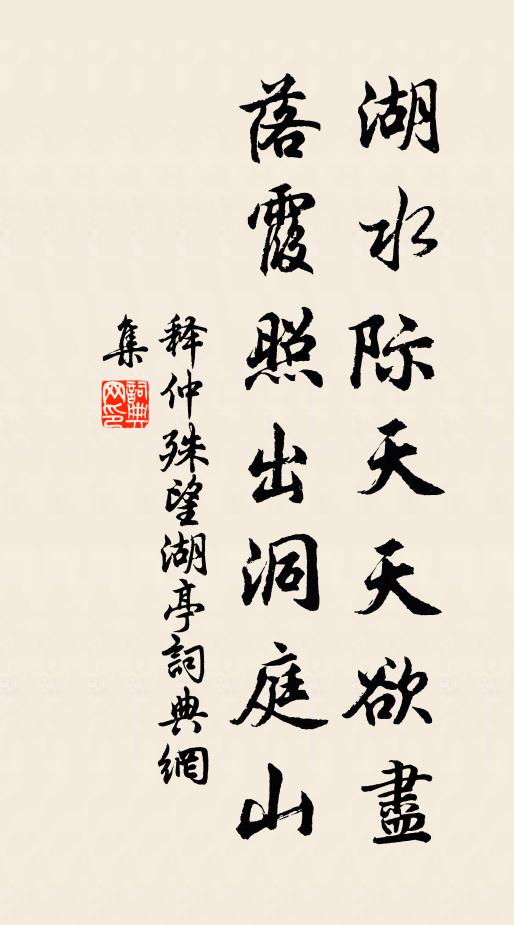 湖水际天天欲盡
落霞照出洞庭山
释仲殊望湖亭詞典網
集
詞典网印